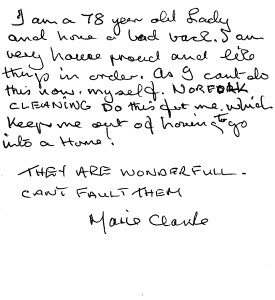 I am a 78 year old Lady
and have a bad back. I am
very house proud and like
things in order. As I cant do
this now myself. NORFORK
CLEANING Do this for me which
keeps me out of having to go
into a Home!
THEY ARE WONDERFULL.
CANT FAULT THEM
Marie Clarke